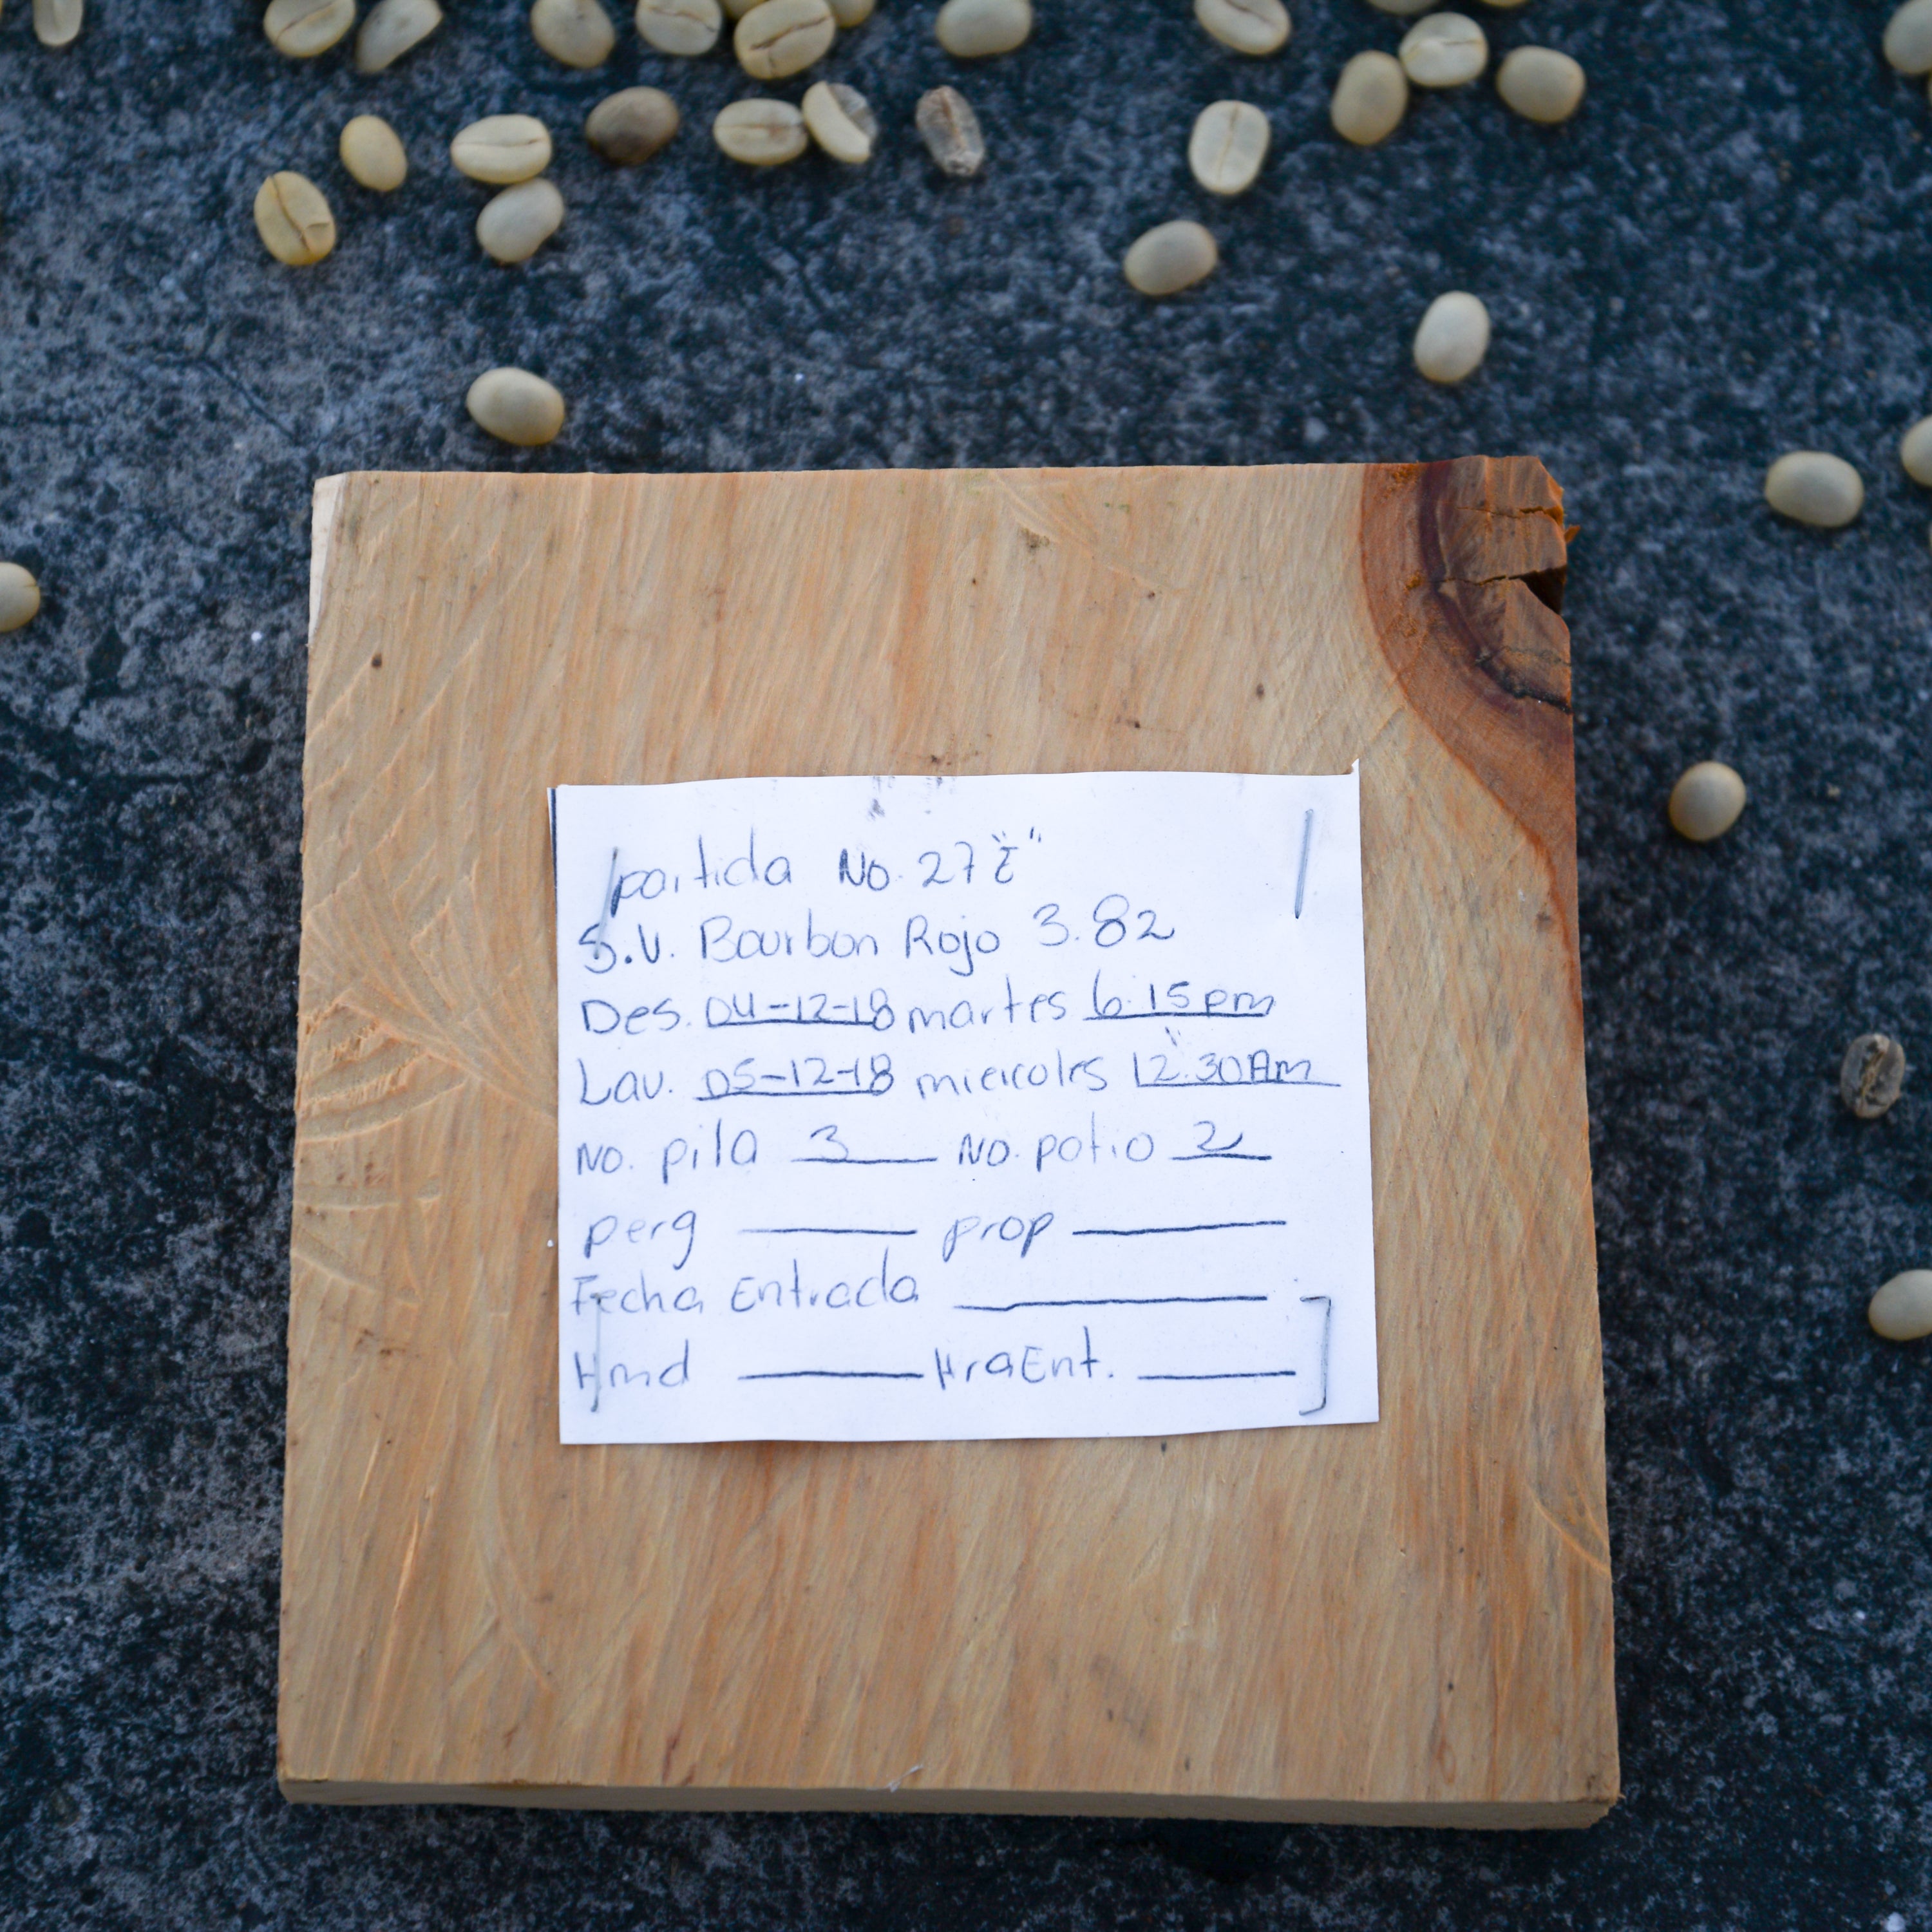 partida No. 27
S.V. Bourbon Rojo 3.82
Des. 04-12-18 martes 6:15 pm
Lav. 05-12-18 miercoles 12:30 Am
No. pila 3 No. patio 2
perg ______ prop ______
Fecha Entrada ______
Hmd ______ HraEnt. ______